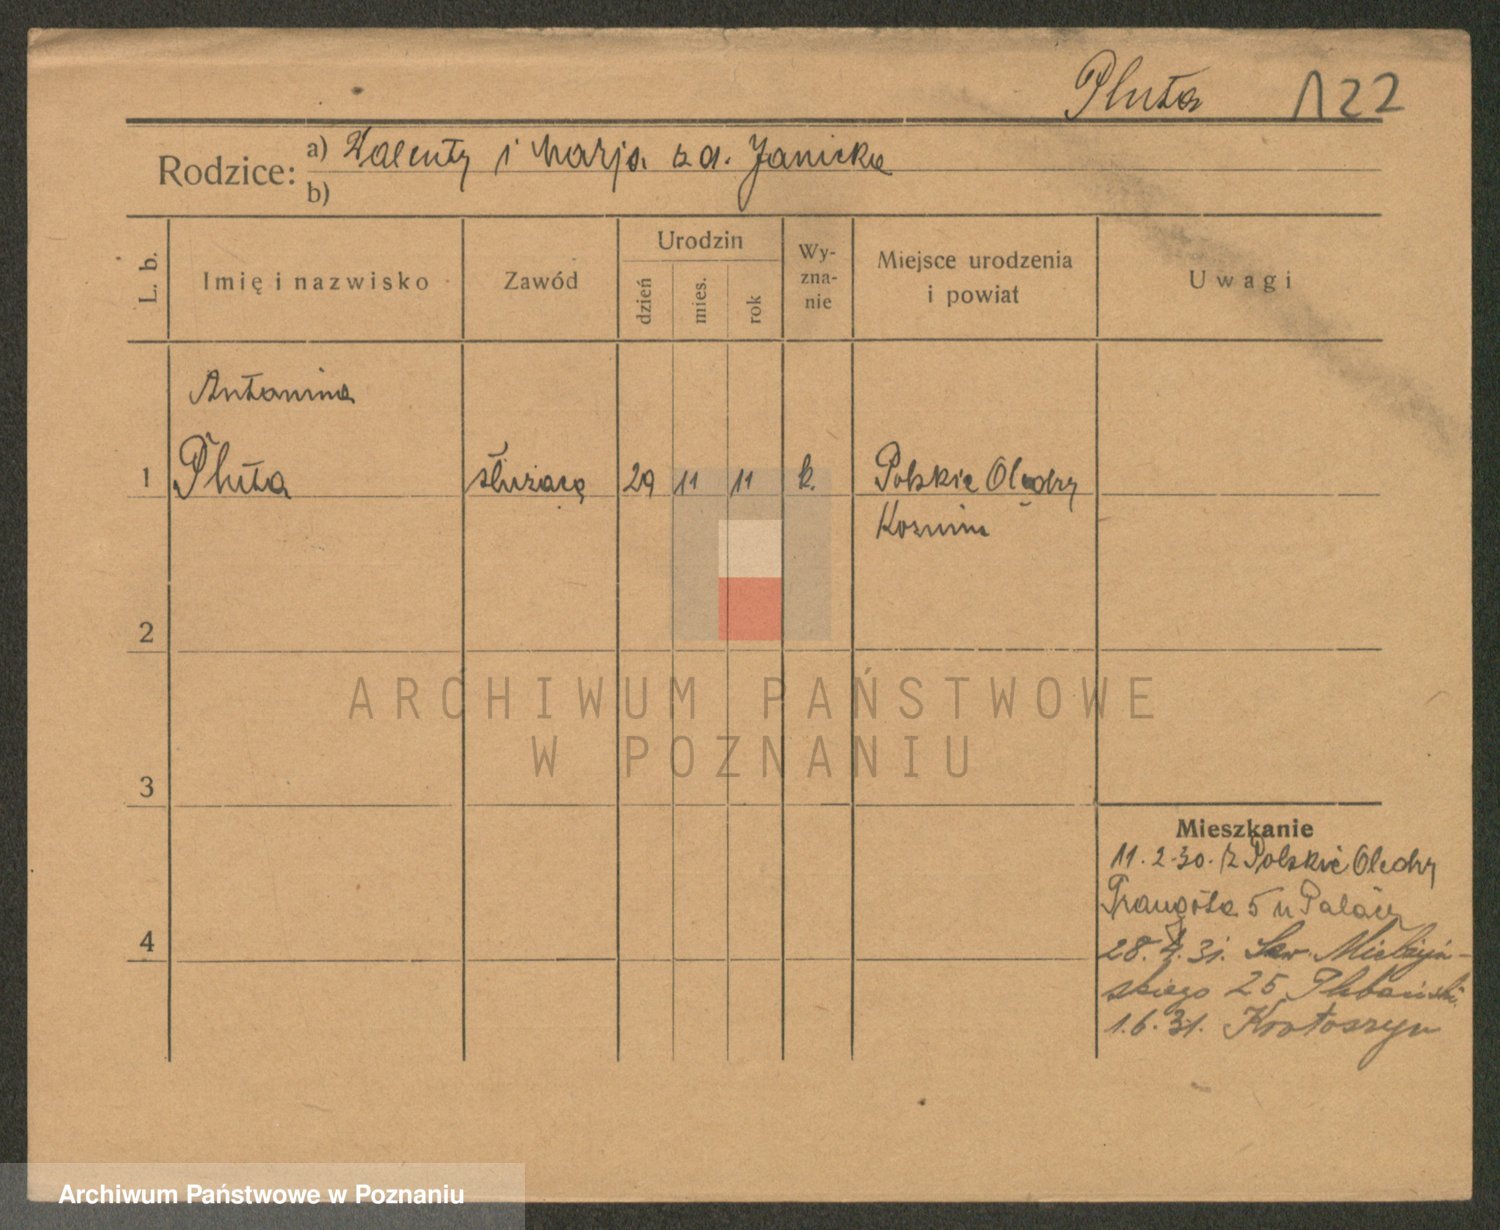 Pluta 122
Rodzice: a) Walenty i Marja z d. Janicka
b)
L. b. Imię i nazwisko Zawód Urodzin dzień mies. rok Wy-zna-nie Miejsce urodzenia i powiat Uwagi
Antonina
1 Pluta służąca 29 11 11 k. Polskie Olędry
Kozmin
2
3
4
Mieszkanie
11.2.30. z Polskie Olędry
Traugutta 5 u
28.4.31. Mielżyń-
skiego 25
1.6.31. Krotoszyn
ARCHIWUM PAŃSTWOWE
W POZNANIU
Archiwum Państwowe w Poznaniu